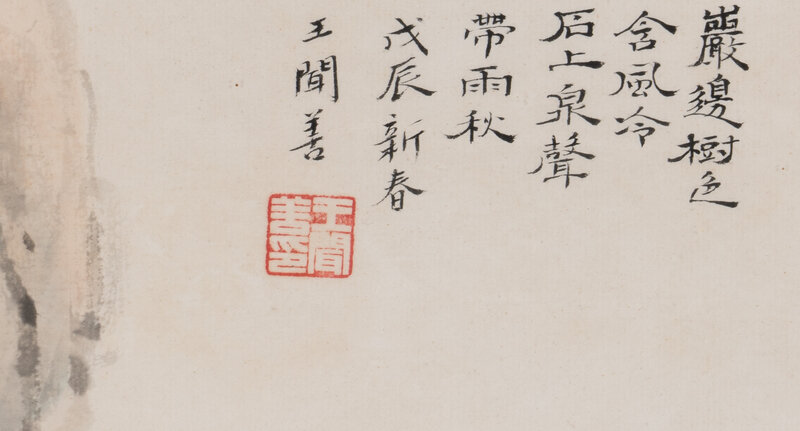 巖邊樹色
含風冷
石上泉聲
帶雨秋
戊辰新春
王聞善
王聞善印